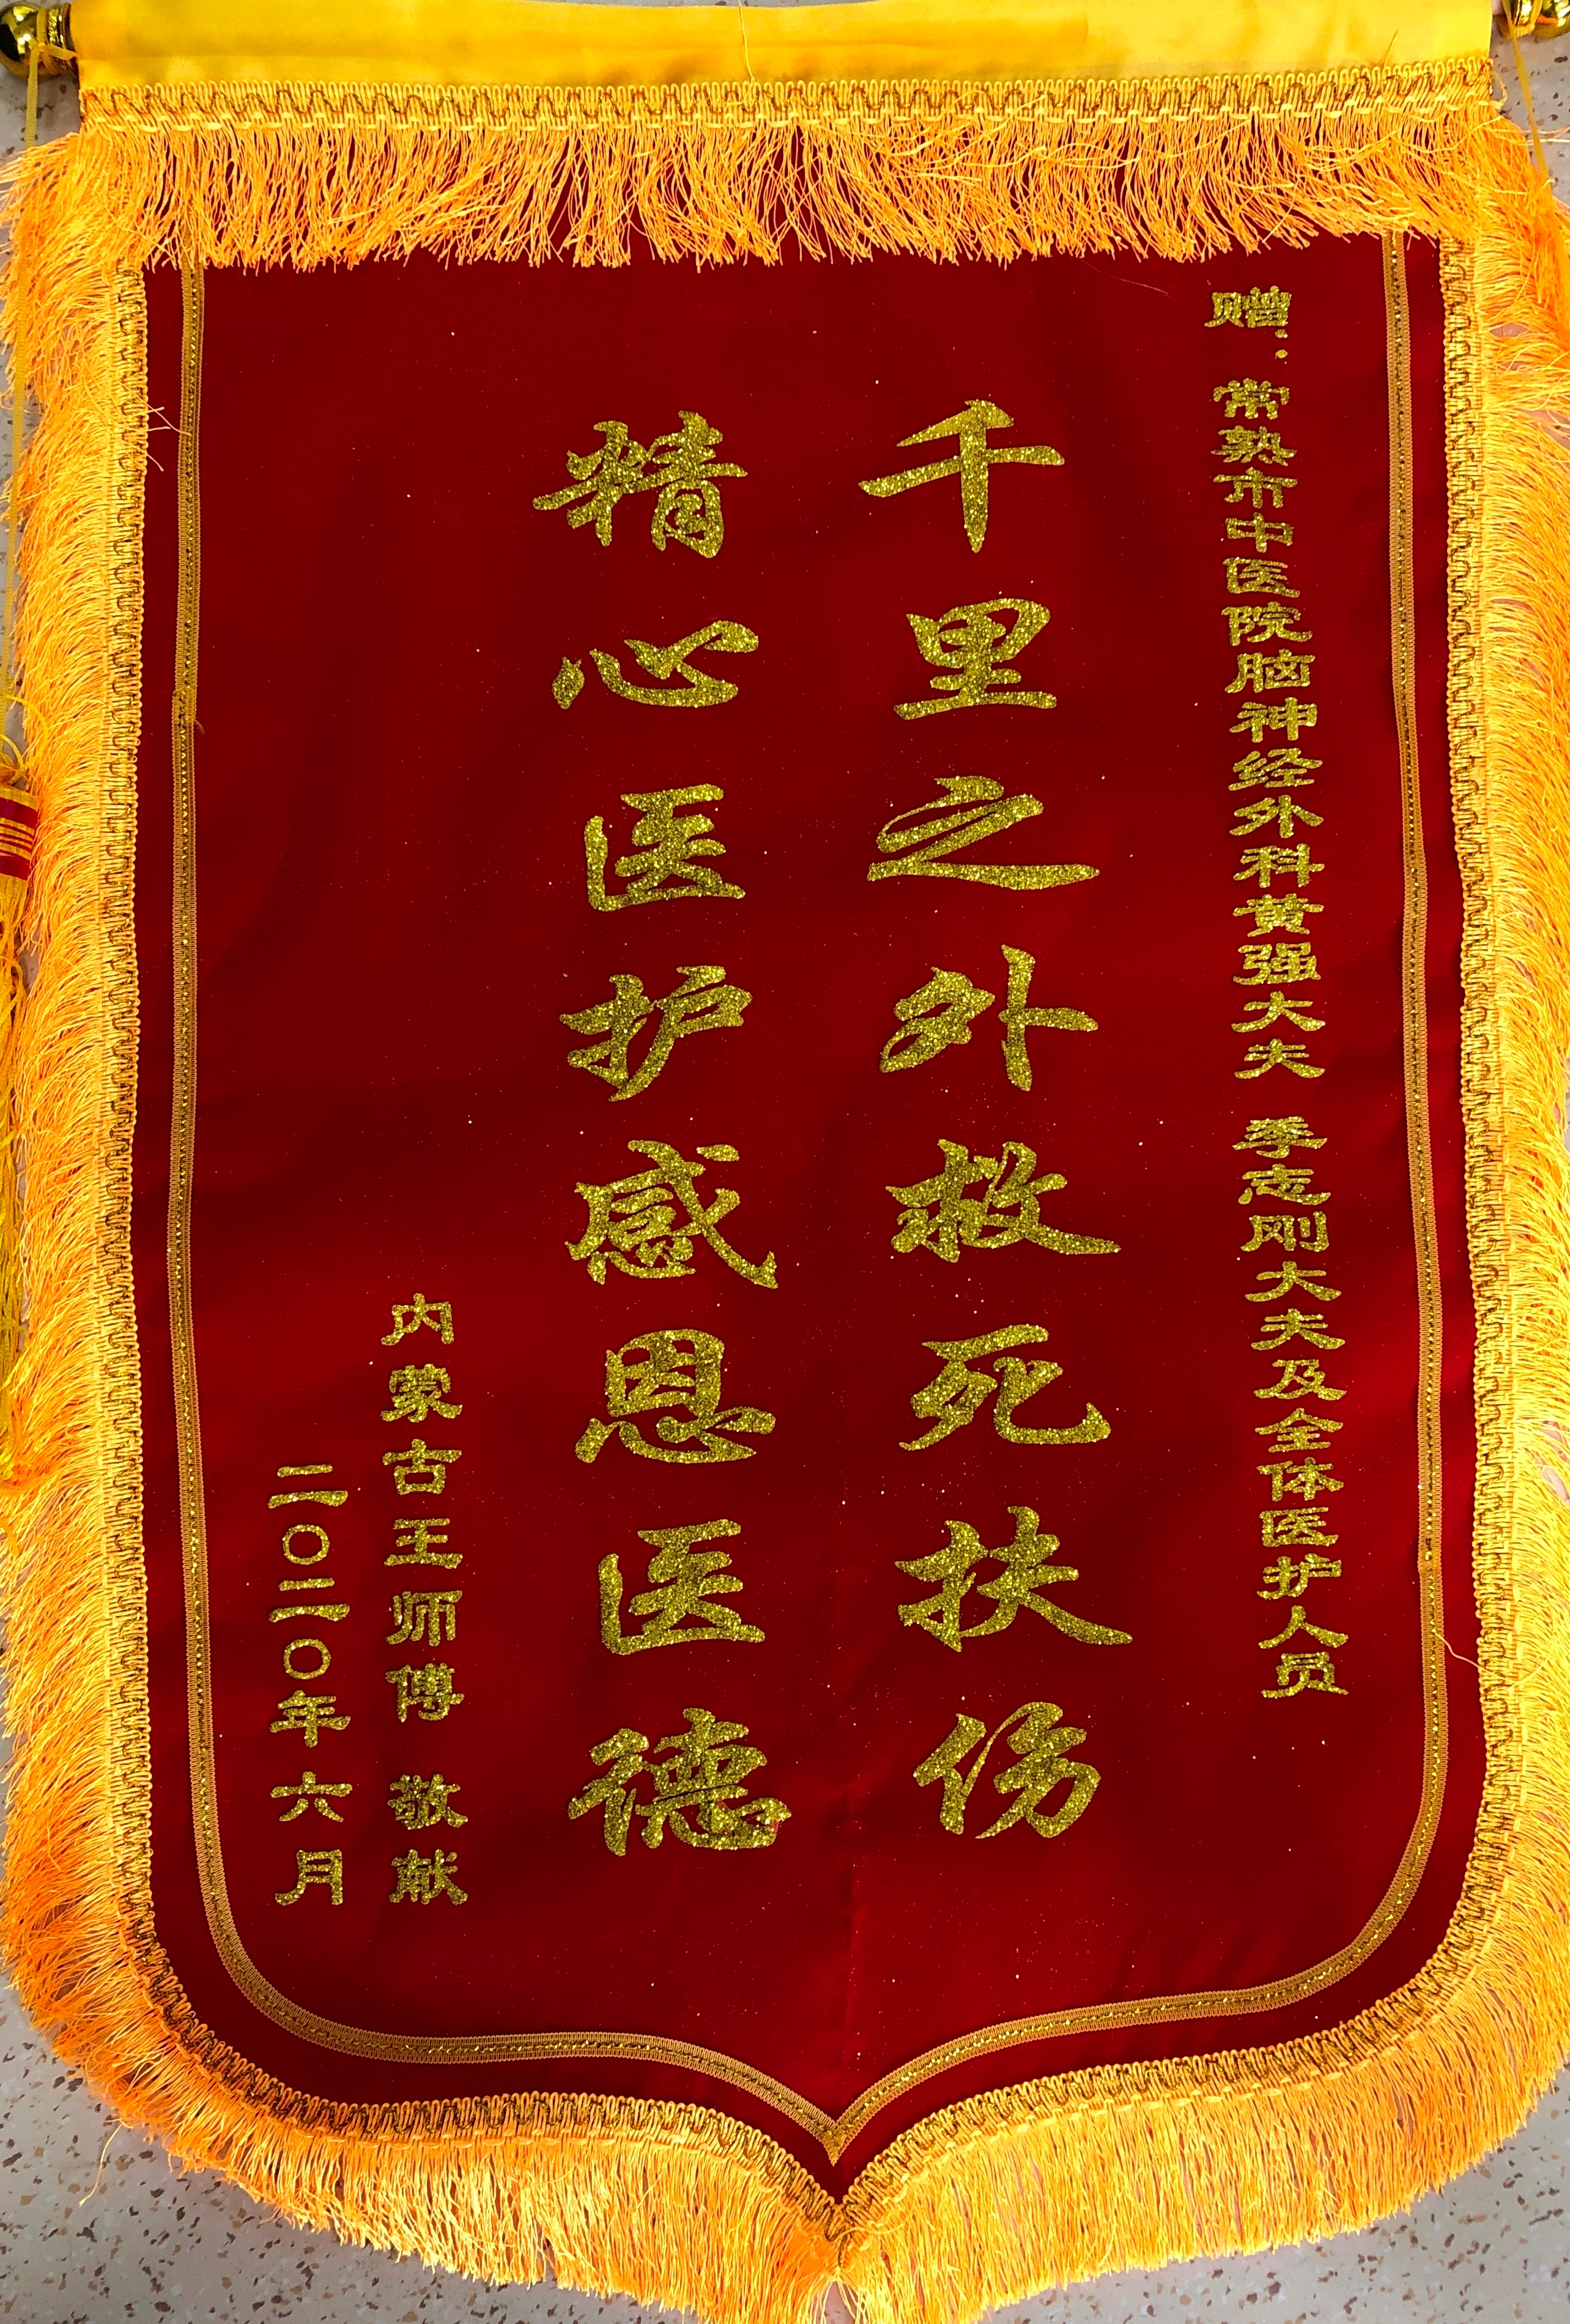 赠：常熟市中医院脑神经外科黄强大夫 季志刚大夫及全体医护人员
千里之外救死扶伤
精心医护感恩医德
内蒙古王师傅 敬献
二〇二〇年六月